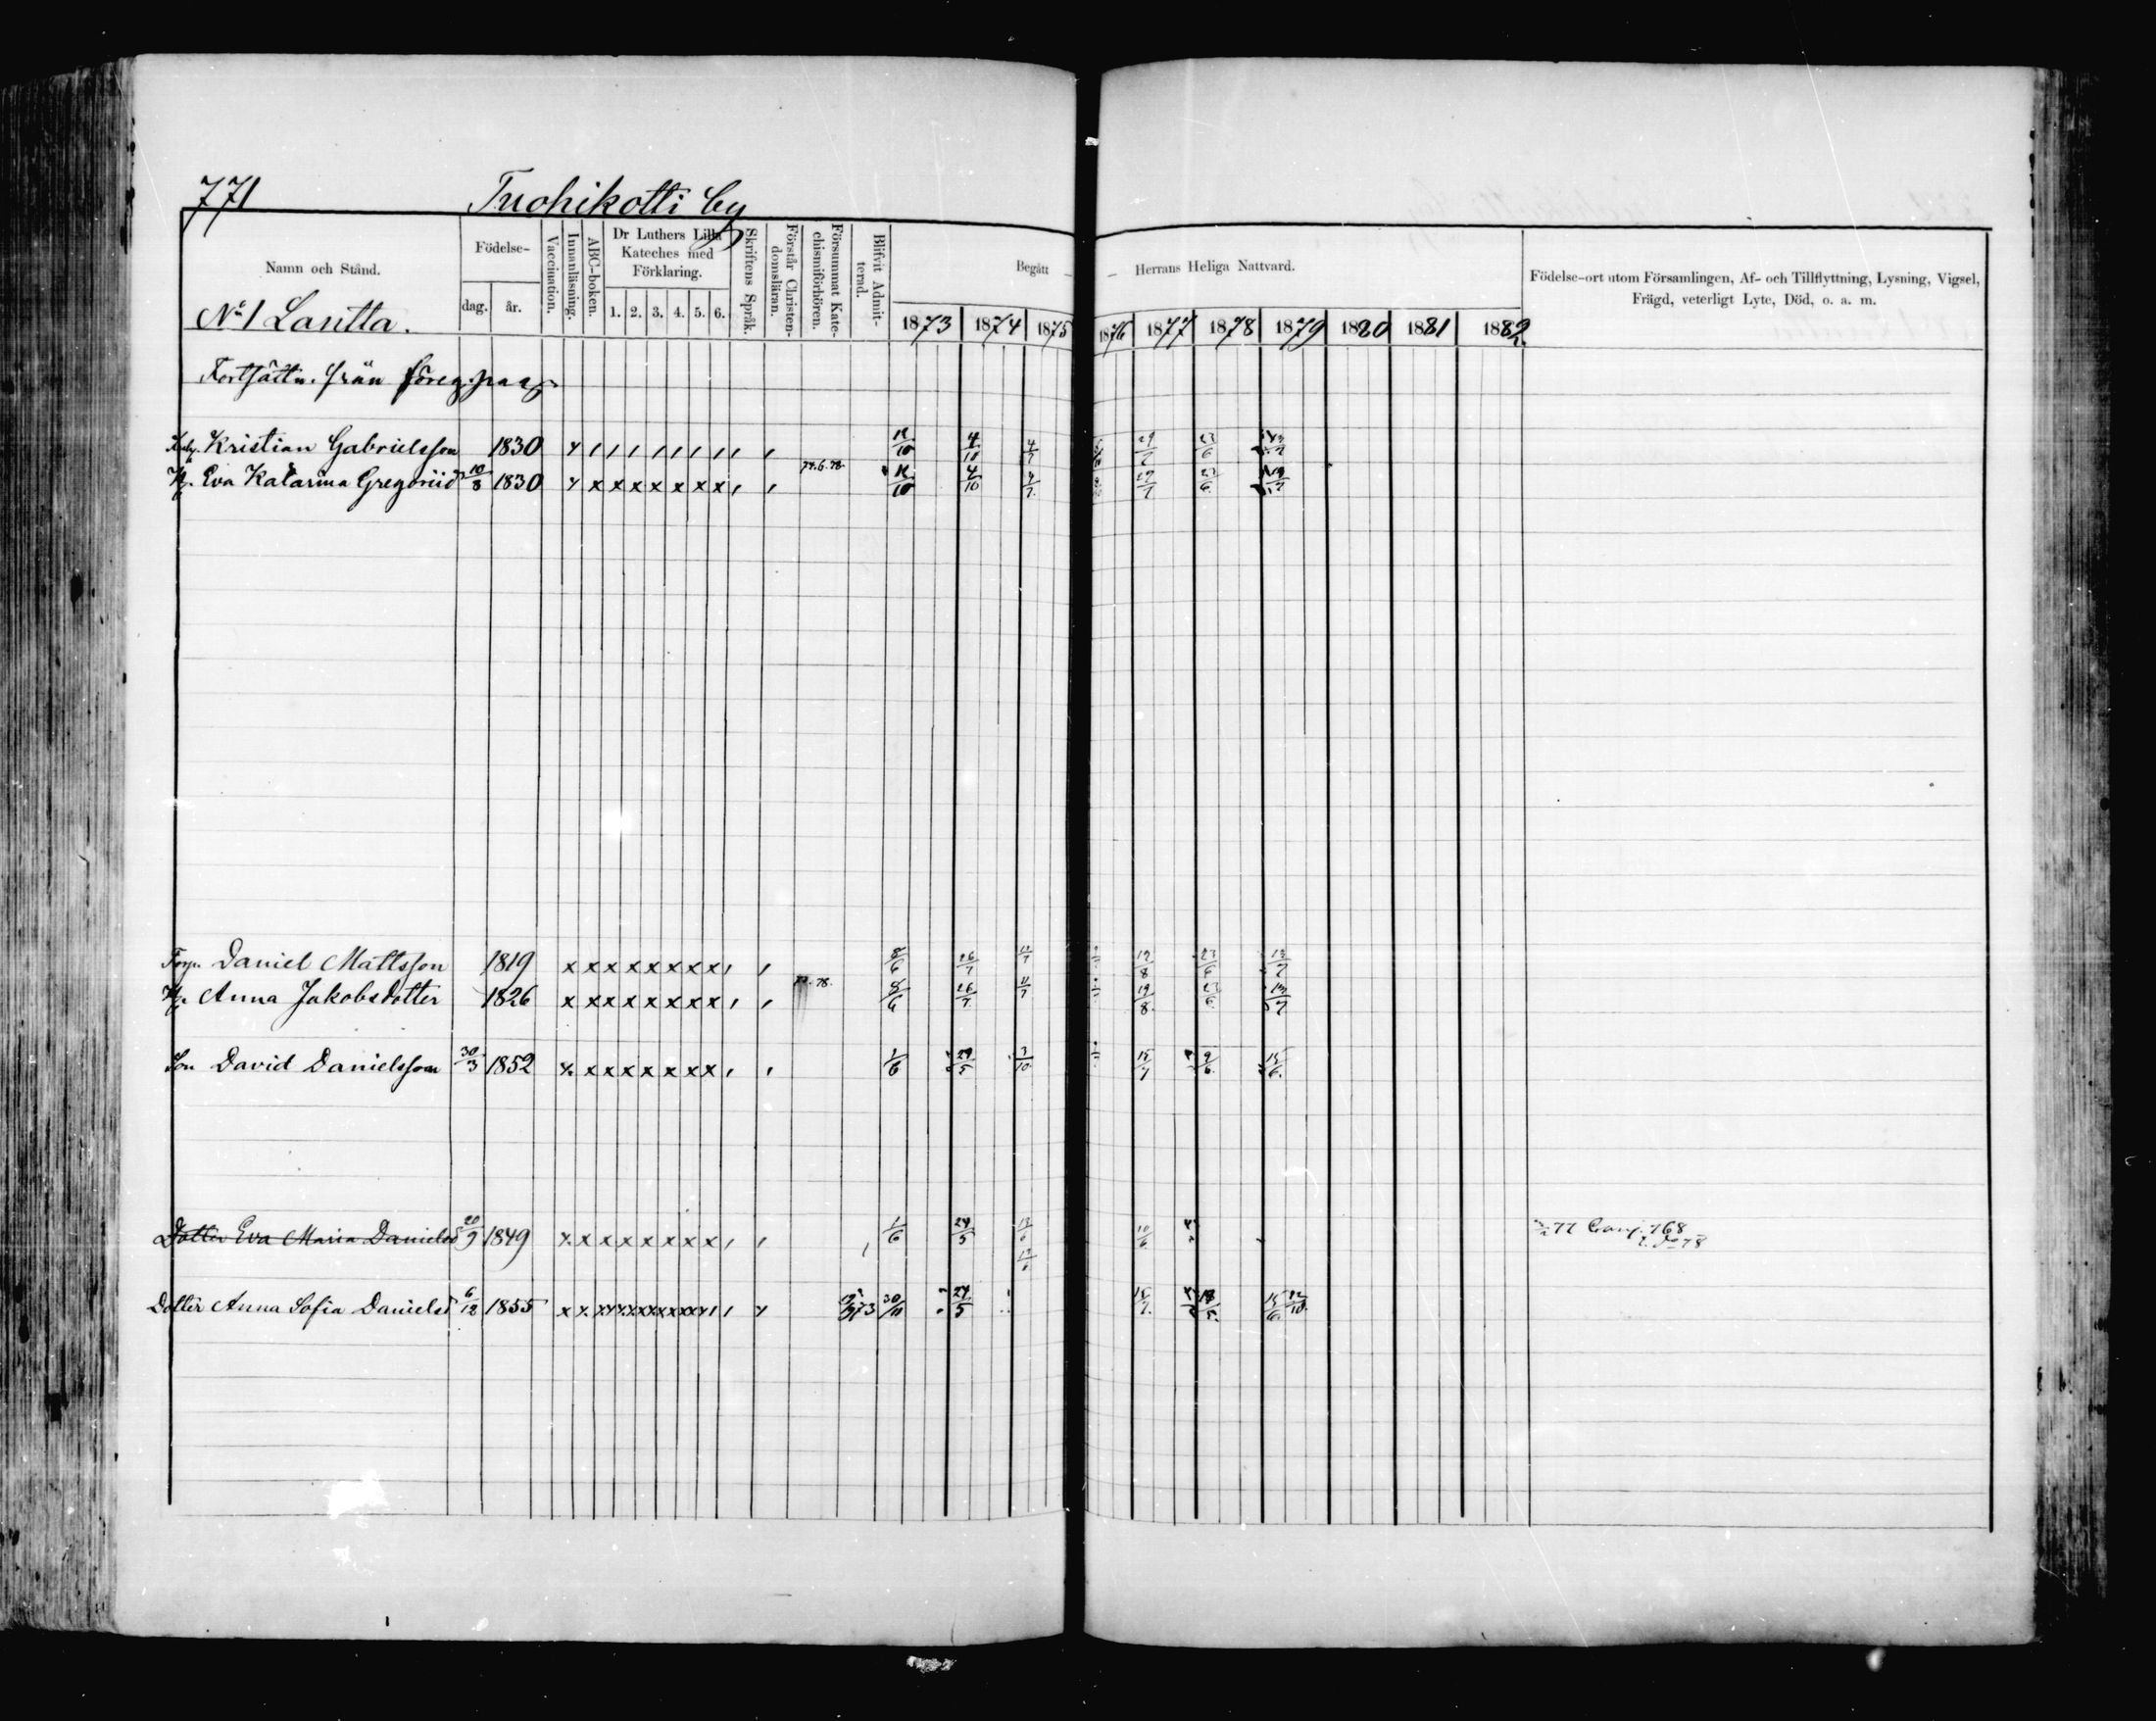 771 Tuohikotti by
Namn och Stånd.
Födelse-
dag. år.
Vaccination.
Innanläsning.
ABC-boken.
Dr Luthers Lilla
Kateches med
Förklaring.
1. 2. 3. 4. 5. 6.
Skriftens Språk.
Förstår Christen-
domsläran.
Försummat Kate-
chismiförhören.
Blifvit Admit-
terad.
Begått — — Herrans Heliga Nattvard.
1873 1874 1875 1876 1877 1878 1879 1880 1881 1882
Födelse-ort utom Församlingen, Af- och Tillflyttning, Lysning, Vigsel,
Frägd, veterligt Lyte, Död, o. a. m.
No 1
Fortsättn. från föreg. pag.
Kristian Gabrielsson 1830 4/10 4/7 29/7 23/6
H. Eva Katarina 10/8 1830 x x x x x x x 4/10 4/7 29/7 23/6
Daniel Mattsson 1819 x x x x x x x x 8/6 26/7 11/7 19/8 23/6 13/7
H. Anna Jakobsdotter 1826 x x x x x x x x 78. 8/6 26/7 11/7 19/8 23/6 13/7
Son David Danielsson 30/3 1852 x x x x x x x x 1/6 24/5 3/10 15/7 9/6 15/6
Dotter Eva Maria Danielsd 20/9 1849 x x x x x x x x 1/6 24/5 10/6 77 768
78
Dotter Anna Sofia Danielsd 6/12 1855 73 30/11 24/5 15/7 15/6 12/10